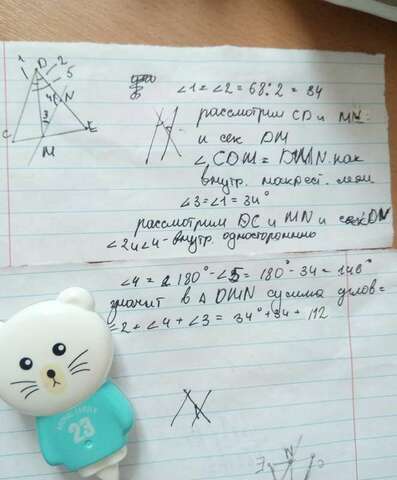 1 D 2
5
4 N
3
C E
M
∠1 = ∠2 = 68:2 = 34
рассмотрим CD и MN
и сек DM
∠CDM = DMN как
внутр. накрест. леж
∠3=∠1= 34°
рассмотрим DC и MN и сек DN
∠2и∠4-внутр. односторонние
∠4 = 180°-∠5= 180°-34 = 146°
значит в △ DMN сумма углов =
=2 + ∠4 + ∠3 = 34°+34 + 112
23
N